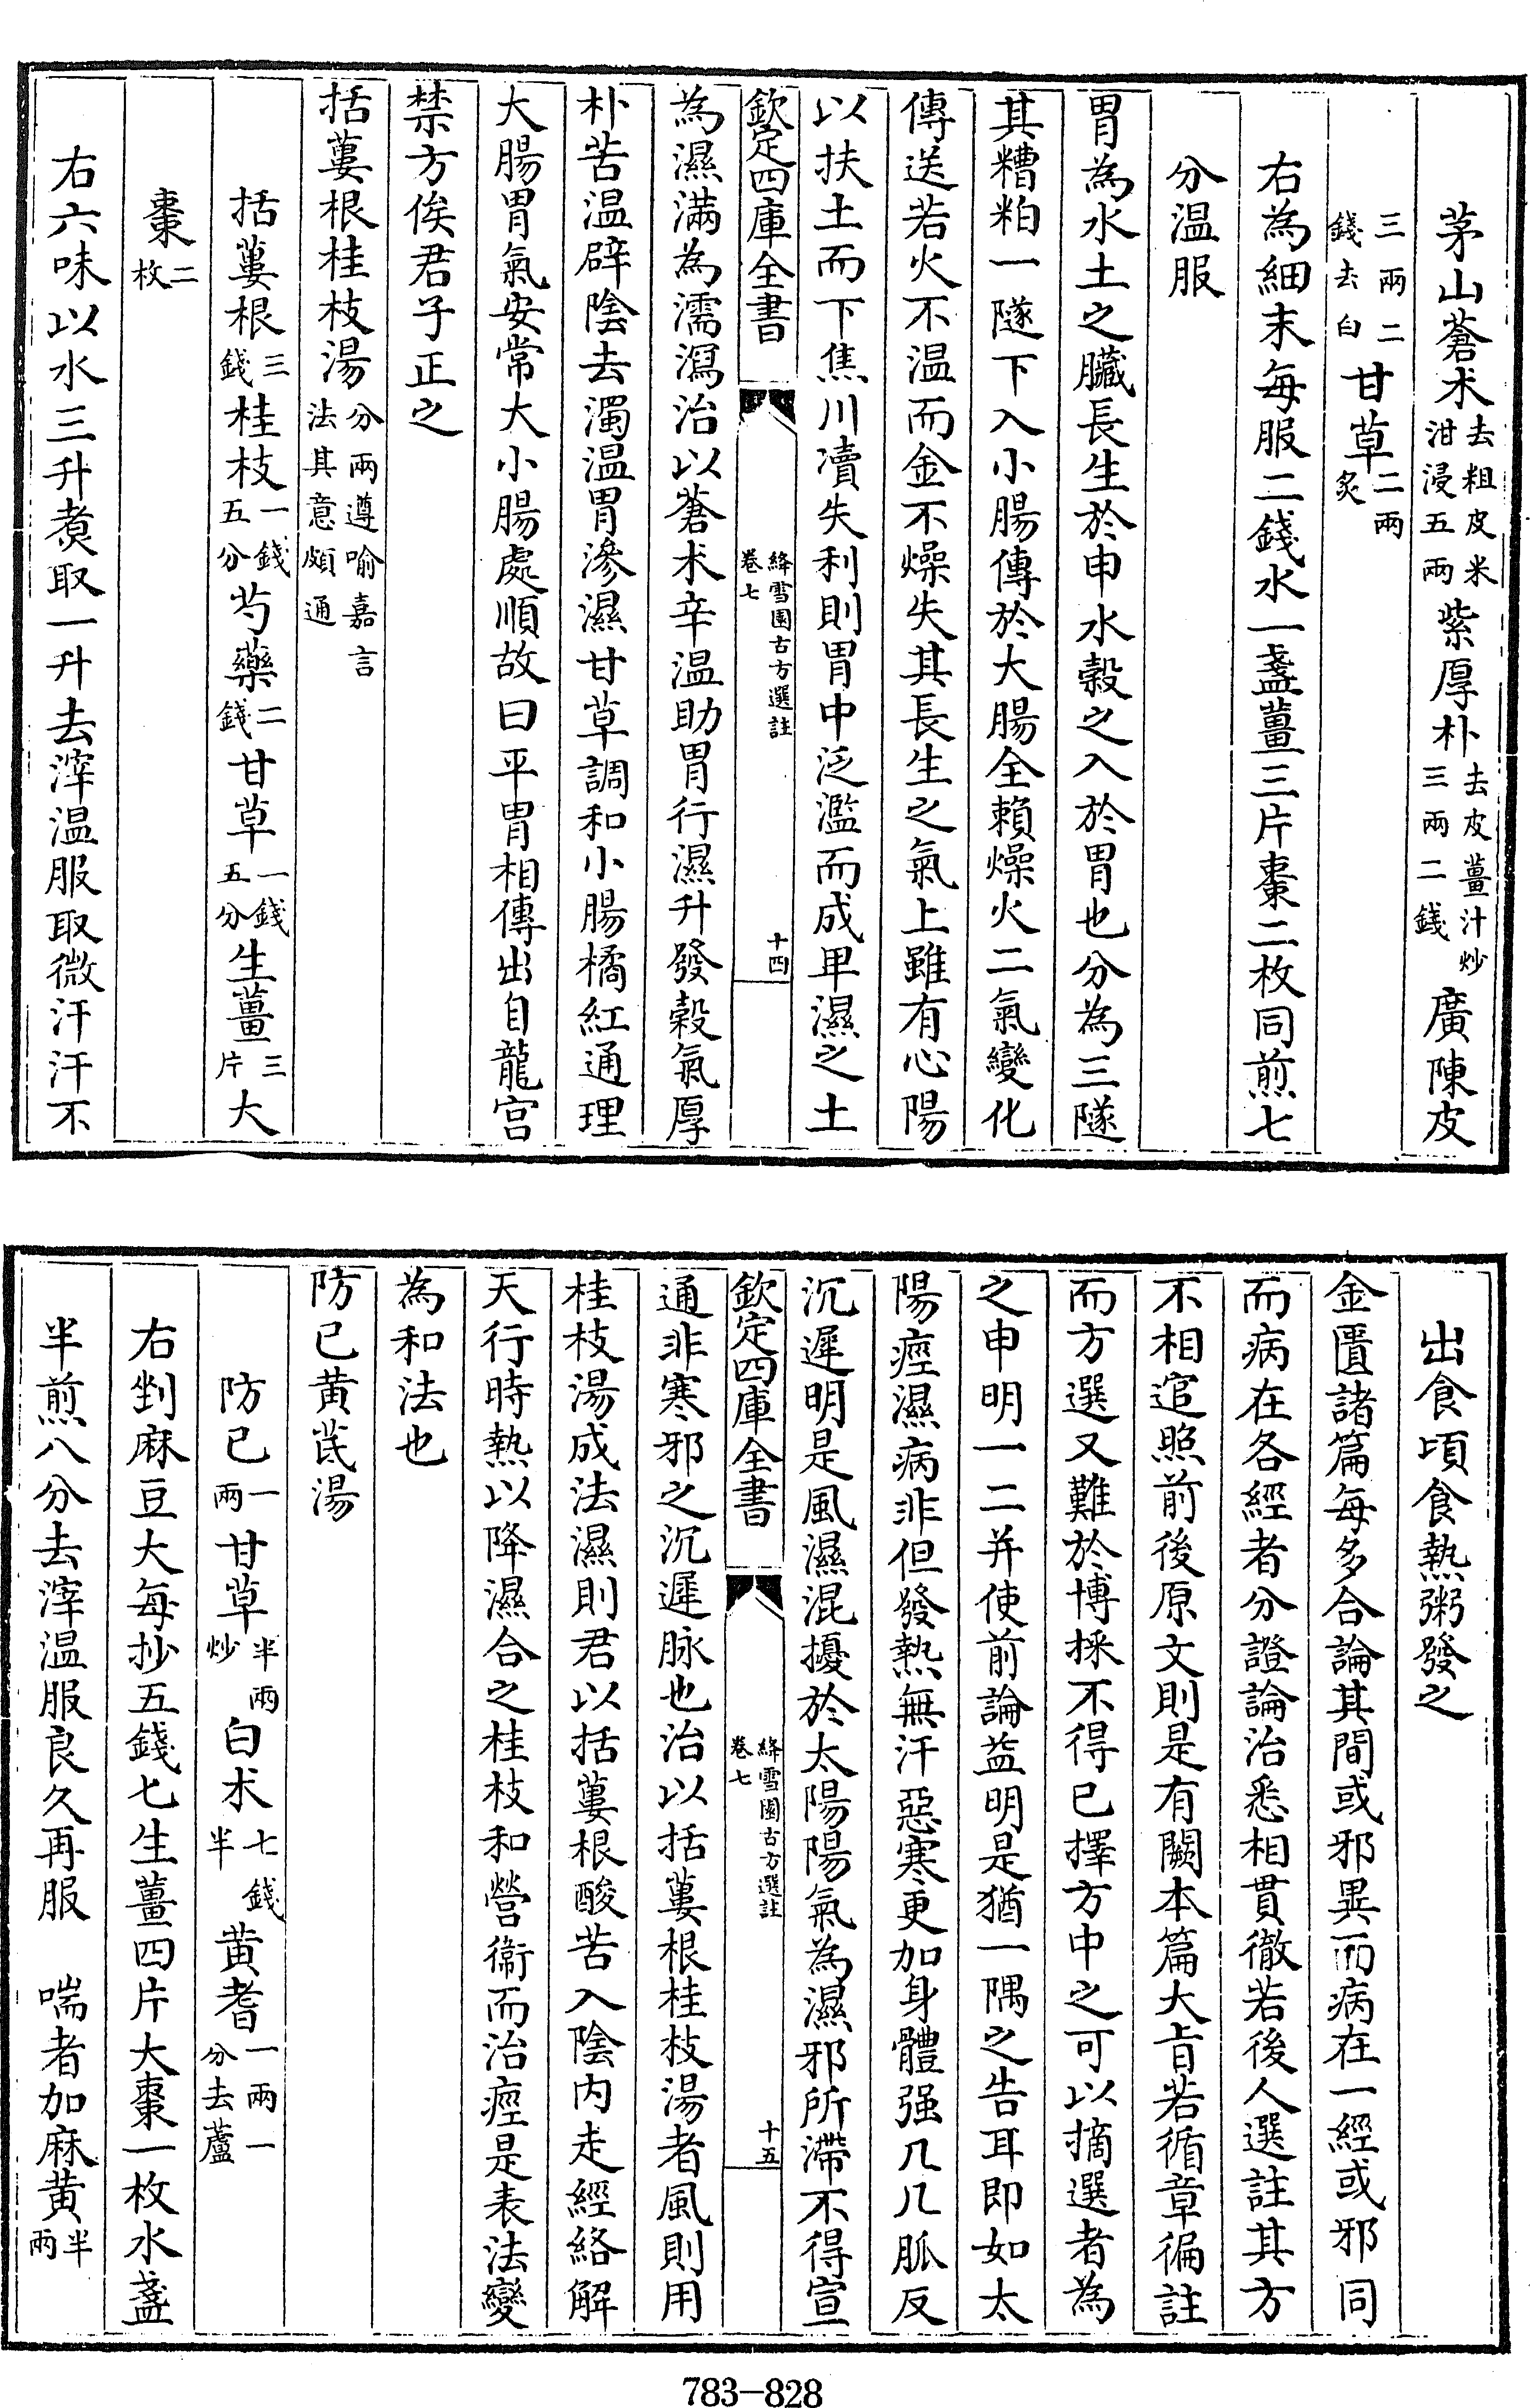 茅山蒼朮去粗皮米泔浸五兩紫厚朴去皮薑汁炒三兩二錢廣陳皮
三兩二錢去白甘草二兩炙
右為細末每服二錢水一盞薑三片棗二枚同煎七
分温服
胃為水土之臟長生於申水穀之入於胃也分為三隧
其糟粕一隧下入小腸傳於大腸全賴燥火二氣變化
傳送若火不温而金不燥失其長生之氣上雖有心陽
以扶土而下焦川瀆失利則胃中泛濫而成卑濕之土
欽定四庫全書 絳雪園古方選註卷七 十四
為濕滿為濡瀉治以蒼朮辛温助胃行濕升發穀氣厚
朴苦温辟陰去濁温胃滲濕甘草調和小腸橘紅通理
大腸胃氣安常大小腸處順故曰平胃相傳出自龍宮
禁方俟君子正之
括蔞根桂枝湯分兩遵喻嘉言法其意頗通
括蔞根三錢桂枝一錢五分芍藥二錢甘草一錢五分生薑三片大
棗二枚
右六味以水三升煑取一升去滓温服取微汗汗不
出食頃食熱粥發之
金匱諸篇每多合論其間或邪異而病在一經或邪同
而病在各經者分證論治悉相貫徹若後人選註其方
不相逭照前後原文則是有闕本篇大肯若循章徧註
而方選又難於博採不得已擇方中之可以摘選者為
之申明一二并使前論益明是猶一隅之告耳即如太
陽痙濕病非但發熱無汗惡寒更加身體强几几脈反
沉遲明是風濕混擾於太陽陽氣為濕邪所滯不得宣
欽定四庫全書 絳雪園古方選註卷七 十五
通非寒邪之沉遲脉也治以括蔞根桂枝湯者風則用
桂枝湯成法濕則君以括蔞根酸苦入陰内走經絡解
天行時熱以降濕合之桂枝和營衞而治痙是表法變
為和法也
防已黄芪湯
防已一兩甘草半兩炒白朮七錢半黄耆一兩一分去蘆
右剉麻豆大每抄五錢七生薑四片大棗一枚水盞
半煎八分去滓温服良久再服 喘者加麻黄半兩
783-828